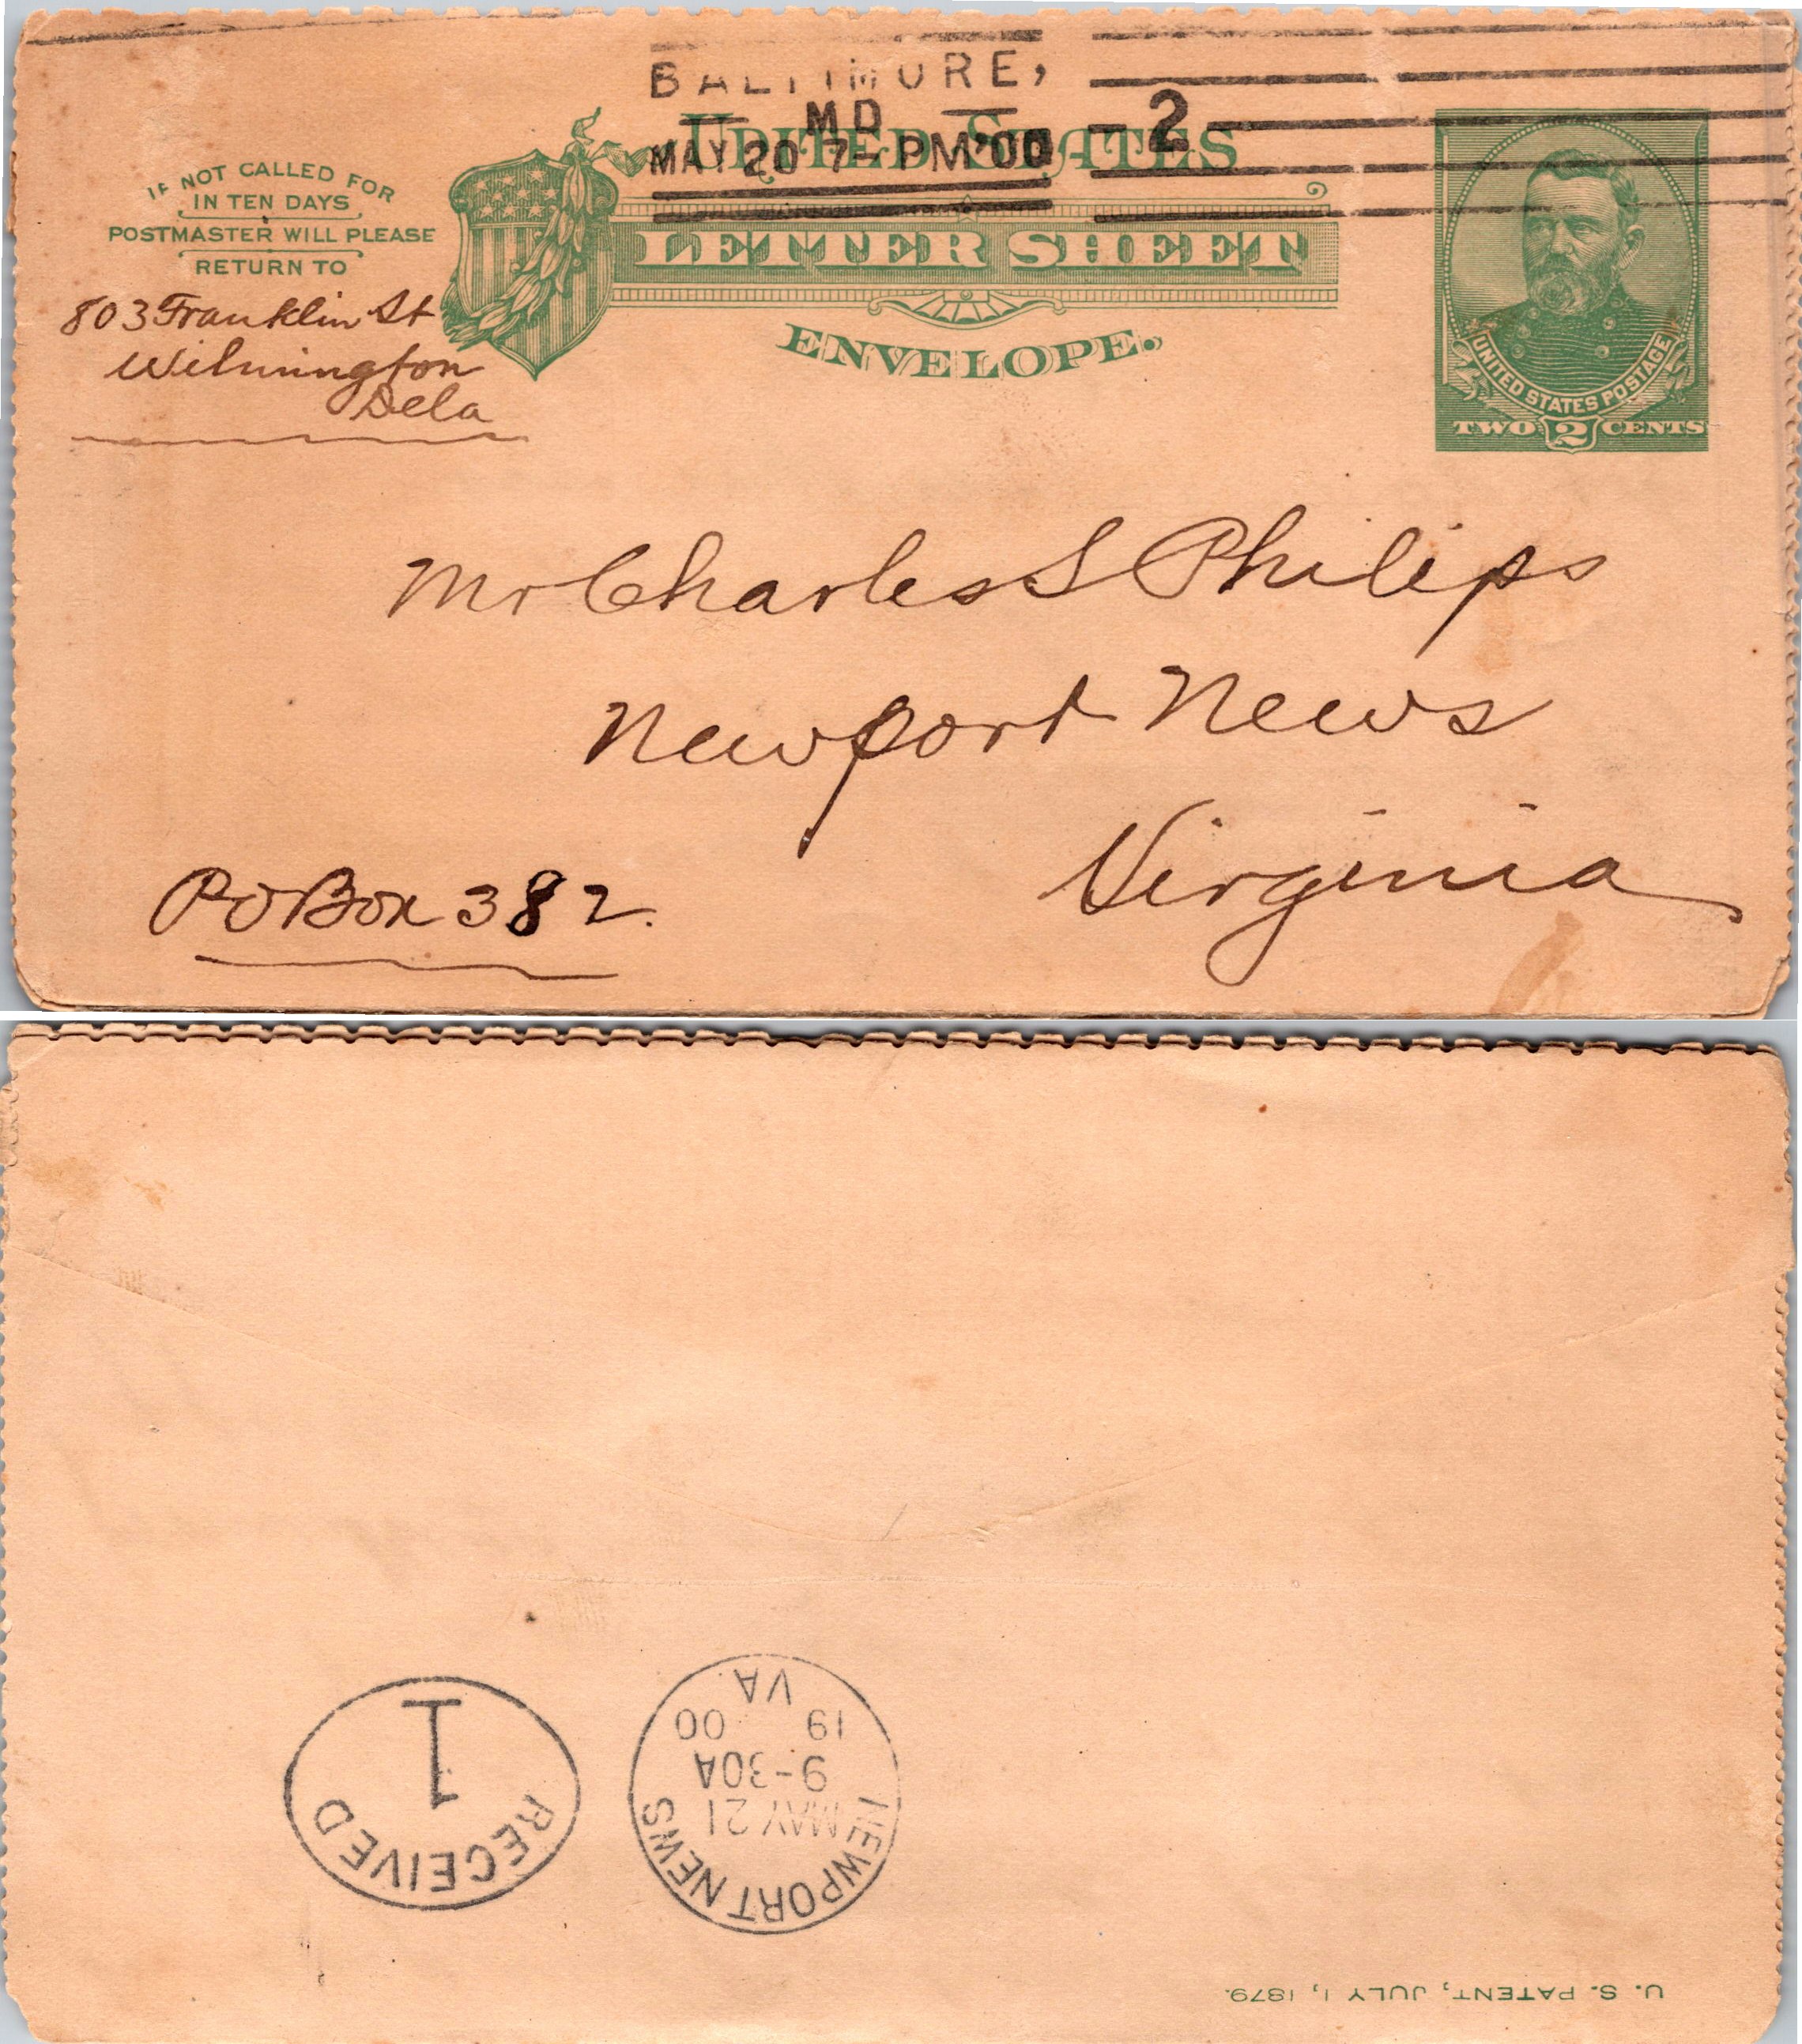 BALTIMORE,
MD
MAY 20 7-PM '00
2
UNITED STATES
LETTER SHEET
ENVELOPE.
IF NOT CALLED FOR
IN TEN DAYS
POSTMASTER WILL PLEASE
RETURN TO
803 Franklin St
Wilmington
Dela
UNITED STATES POSTAGE
TWO 2 CENTS
Mr Charles S Philips
Newport News
Virginia
PO Box 382.
RECEIVED
1
NEWPORT NEWS
MAY 21
9-30A
19 00
VA.
U. S. PATENT, JULY 1, 1879.